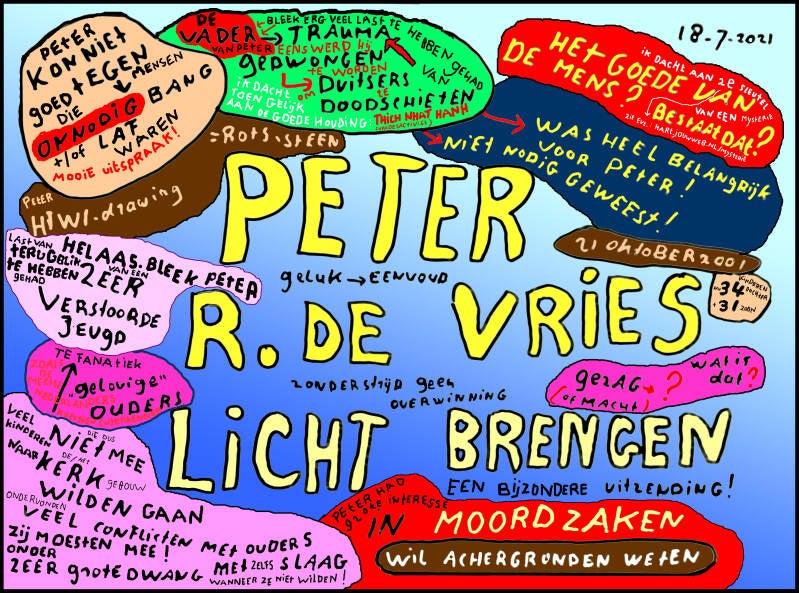 18-7-2021
PETER
KON NIET
goED tEGEN
MENSEN
DiE
ONNODIG BANG
+/oF LAF
WAREN
MOOiE UitSPRAAK!
DE
VADER
VAN PETER
BLEEK ERG VEEL LAST TE HEBBEN GEHAD
VAN
TRAUMA
EENS WERD Hij
gEDWONgEN
TE WORDEN
om DuitSERS
TE
DOODSCHiETEN
iK DACHT
TOEN GELijK
AAN DE GOEDE HOUDING: THiCH NHAT HANH
HET GOEDE VAN
DE MENS?
iK DACHT AAN 2E SLEUTEL
VAN EEN MYSTERiE
BESTAAT DAT?
ZiE EVT.: HARTJOUWWEB.NL/MYSTERiE
WAS HEEL BELANgRijK
VOOR PETER!
NiET NODiG GEWEEST!
=ROtS-StEEN
PETER
HiWi-drawing
PETER
21 oktoBER 2001
KiNDEREN
34 DOCHTER
+31 ZOON
LAST VAN HELAAS BLEEK PETER
TERUGELiK VAN EEN
TE HEBBEN ZEER
GEHAD
VERStooRDE
JEUgD
gELUK → EENVOUD
R. DE VRiES
TE FANATiEK
ZOALS
DE
MEESTE
NEDERLANDERS
"gElovigE"
OUDERS
ZONDER StRijd gEEn
OVERWiNNiNg
gEZAG → ?
(OF MACHt)
WAt iS
dAt?
LiCHT BRENGEN
VEEL
KINDEREN
DiE DUS
NiEt MEE
NAAR
DE/HET
KERK gEBOUW
WiLDEN gAAN
ONDERVONDEN
VEEL CONFLiCtEN MEt OUDERS
Zij MOESTEN MEE!
ONDER
ZEER gRotE DWANg
MEt ZELFS SLAAG
WANNEER ZE NiET WiLDEN!
EEN BijZONDERE UitZENDiNg!
PETER HAD
gROtE iNTERESSE
iN
MOORDZAKEN
WiL ACHERGRONDEN WETEN